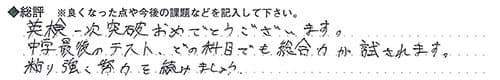 ◆総評 ※良くなった点や今後の課題などを記入して下さい。
英検一次突破おめでとうございます。
中学最後のテスト、どの科目でも総合力が試されます。
粘り強く努力を続けましょう。